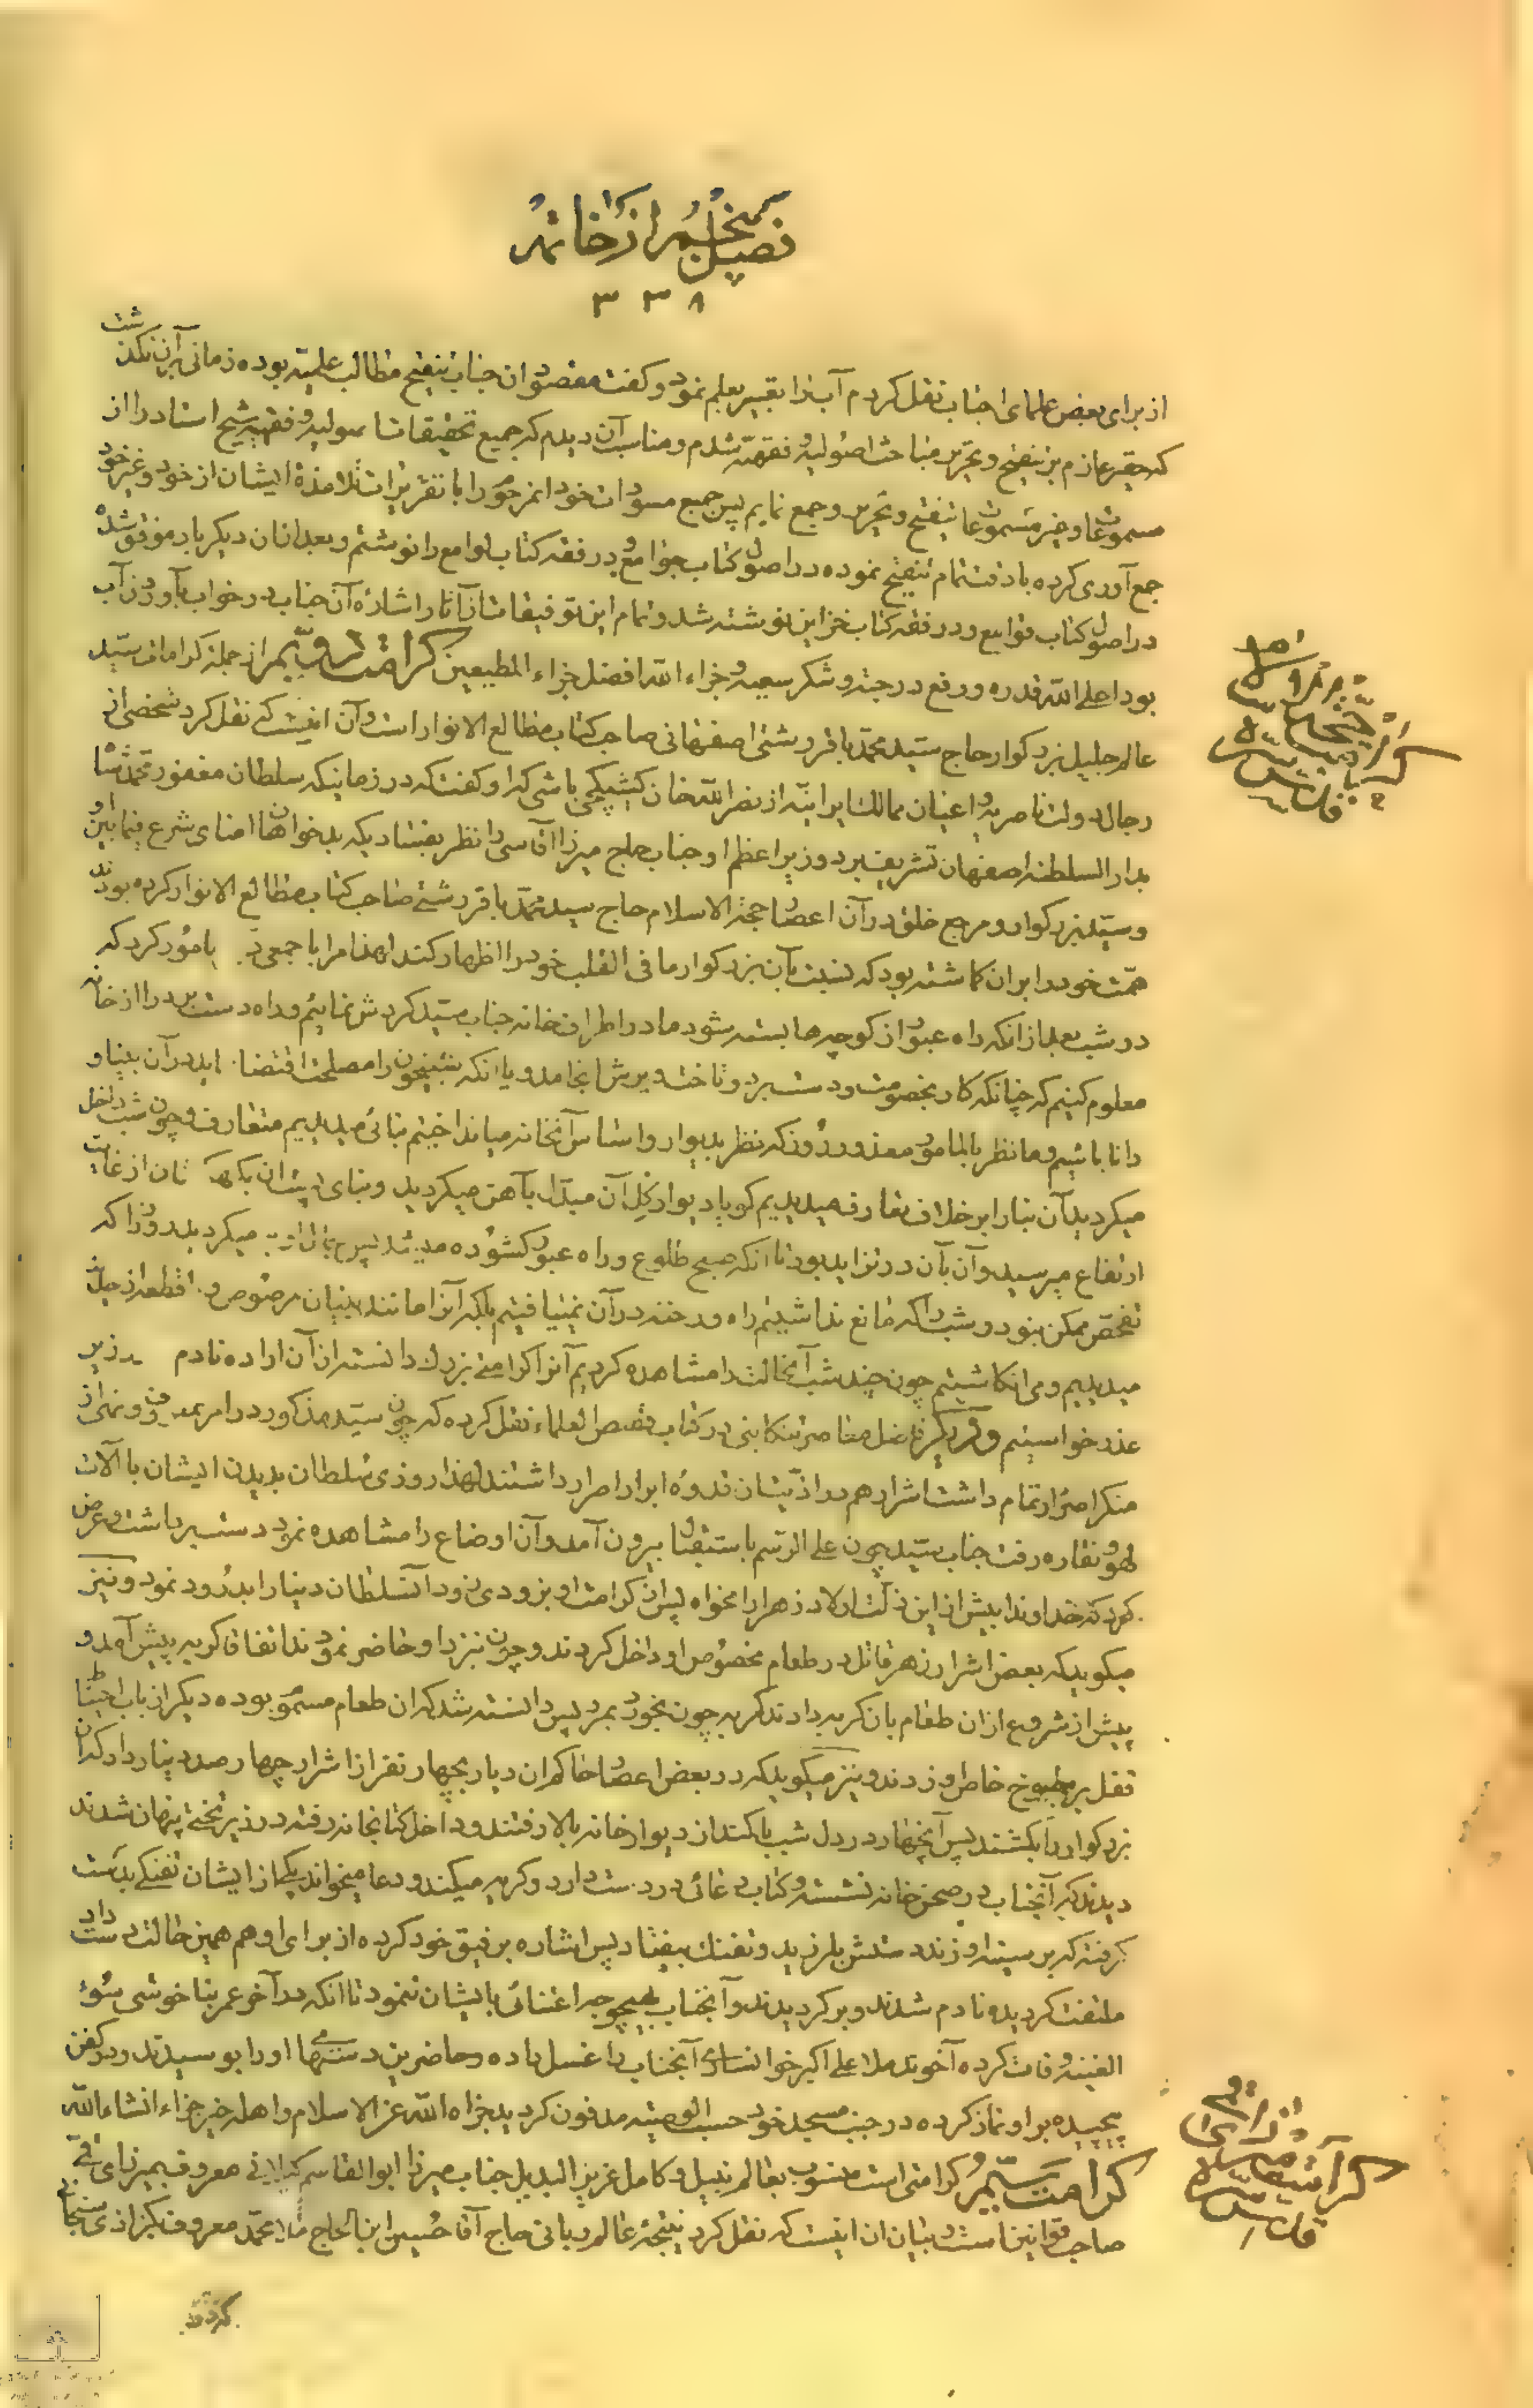 فصل پنجم از خاتمه
۳۳۸
از برای بعض علمای اجناب نقل کردم آب را تعبیر بعلم نمود و گفت مقصود ان جناب تنقیح مطالب علمیه بوده زمانی بر آن نگذشت
که حقیر عازم بر تنقیح و تحریر مباحث اصولیه و فقهیه شدم و مناسب آن دیدم که جمیع تحقیقات اصولیه و فقهیه شیخ استاد را از
مسموعا و غیر مسموعا تنقیح و تحریر و جمع نمایم پس جمیع مسودات خود انمرحوم را با تقریرات تلامذه ایشان از خود و غیر خود
جمع آوری کرده با دقت تمام تنقیح نموده در اصول کتاب جوامع و در فقه کتاب لوامع را نوشتم و بعد از ان دیگر بار موفق شده
در اصول کتاب قوامع و در فقه کتاب خزاین نوشته شد و تمام این توفیقات از آثار اشارهٔ آن جناب در خواب بآوردن آب
بود اعلی الله قدره و رفع درجته و شکر سعیه و جزاه الله افضل جزاء المطیعین کرامت از جمله کرامات سید
عالم جلیل بزرگوار حاج سید محمد باقر رشتی اصفهانی صاحب کتاب مطالع الانوار است و آن اینست که نقل کرد شخصی از
رجال دولت ناصریه و اعیان ممالک ایرانیه از نصرالله خان کشیکچی باشی که او گفت که در زمانیکه سلطان مغفور محمد شاه
بدار السلطنه اصفهان تشریف برد و زیر اعظم او جناب حاج میرزا آقاسی را نظر بفسادیکه بدخواهان امنای شرع فیمابین او
و سید بزرگوار و مرجع خلق در آن اعصار حجة الاسلام حاج سید محمد باقر رشتی صاحب کتاب مطالع الانوار کرده بودند
همت خود را بر ان گماشته بود که نسبت بآن بزرگوار ما فی القلب خود را اظهار کند لهذا مرا با جمعی مامور کرد که
در شب بعد از انکه راه عبور از کوچه ها بسته شود ما در اطراف خانه جناب سید گردش نمائیم و راه دست برد را از خانه
معلوم کنیم که چنانکه کار بخصومت و دست برد و تاخت و یرش انجامد و یا انکه شبیخون را مصلحت اقتضا اید در آن بینا و
دانا باشیم و ما نظر بالمامور معذور روز که نظر بدیوار و اساس آنخانه میانداختیم بنائی میدیدیم متعارف و چون شب داخل
میگردید آن بنا را بر خلاف تعارف میدیدیم گویا دیوار گل آن مبدل بآهن میگردید و بنای
ارتفاع میرسید و آن بآن در تزاید بود تا انکه صبح طلوع و راه عبور گشوده میگردید روز را که
تفحص ممکن نبود و شب را که مانع نداشتیم راه و رخنه در آن نمییافتیم بلکه آنرا مانند بنیان مرصوص و
میدیدیم و می انگاشتیم چون چند شب آنحالت را مشاهده کردیم آنرا کرامتی بزرگ دانسته از آن اراده نادم
عذر خواستیم و دیگر فاضل معاصر تنکابنی در کتاب قصص العلماء نقل کرده که چون سید مذکور در امر بمعروف و نهی از
منکر اصرار تمام داشت اشرار هم در اذیت ان قدوهٔ ابرار اصرار داشتند لهذا روزی سلطان بدیدن ایشان با آلات
لهو و نقاره رفت جناب سید چون علی الرسم باستقبال بیرون آمد و آن اوضاع را مشاهده نمود دست برداشت و عرض
کرد که خداوندا بیش از این ذلت اولاد زهرا را مخواه پس از کرامت او بزودی زود آن سلطان دنیا را بدرود نمود و نیز
میگوید که بعض اشرار زهر قاتل در طعام مخصوص او داخل کردند و چون نزد او حاضر نمودند اتفاقا گربه پیش آمد و
پیش از شروع از ان طعام بان گربه دادند گربه چون بخورد بمرد پس دانسته شد که ان طعام مسموم بوده دیگر از باب احتیاط
قفل بر مطبوخ خاص او زدند و نیز میگوید که در بعض اعصار حاکم ان دیار بچهار نفر از اشرار چهار صد دینار داد که ان
بزرگوار را بکشتند پس آنچهار در دل شب با کمند از دیوار خانه بالا رفتند و داخل کتابخانه رفته در زیر تخت پنهان شدند
دیدند که آنجناب در صحن خانه نشسته و کتاب دعائی در دست دارد و گریه میکند و دعا میخواند یکی از ایشان تفنگی بدست
گرفته که بر سینه او زند دستش بلرزید و تفنگ بیفتاد پس اشاره برفیق خود کرده از برای او هم همین حالت دست داد
ملتفت گردیده نادم شدند و برگردیدند و آنجناب بهیچ وجه اعتنائی بایشان ننمود تا انکه در آخر عمر بناخوشی سوء
القنیه وفات کرده آخوند ملا علی اکبر خوانساری آنجناب را غسل داده و حاضرین دستهای او را بوسیدند و بر کفن
پیچیده بر او نماز کرده در جنب مسجد خود حسب الوصیه مدفون گردید جزاه الله عز الاسلام و اهله خیر جزاء انشاءالله
کرامت کرامتی است منسوب بعالم نبیل و کامل عزیز البدیل جناب میرزا ابوالقاسم گیلانی معروف بمیرزای قمی
صاحب قوانین است و بیان ان اینست که نقل کرد نتیجة عالم ربانی حاج آقا حسین ابن الحاج ملا محمد معروف